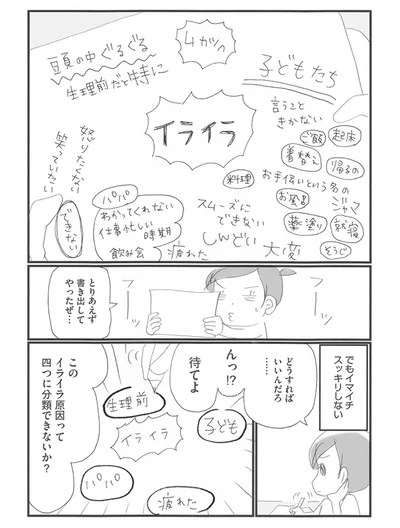 頭の中ぐるぐる
生理前だと特に
ムカツク
子どもたち
イライラ
言うこと
きかない
ご飯
起床
着替え
帰るの
お手伝いという名の
ジャマ
お風呂
薬塗り
就寝
そうじ
料理
スムーズに
できない
しんどい
大変
疲れた
怒りたくない
笑っていたい
できない
パパ
わかってくれない
仕事忙しい
時期
飲み会
とりあえず
書き出して
やったぜ…
でもイマイチ
スッキリしない
どうすれば
いいんだろ
……
んっ!?
待てよ
生理前
イライラ
子ども
パパ
疲れた
この
イライラ原因って
四つに分類できないか?